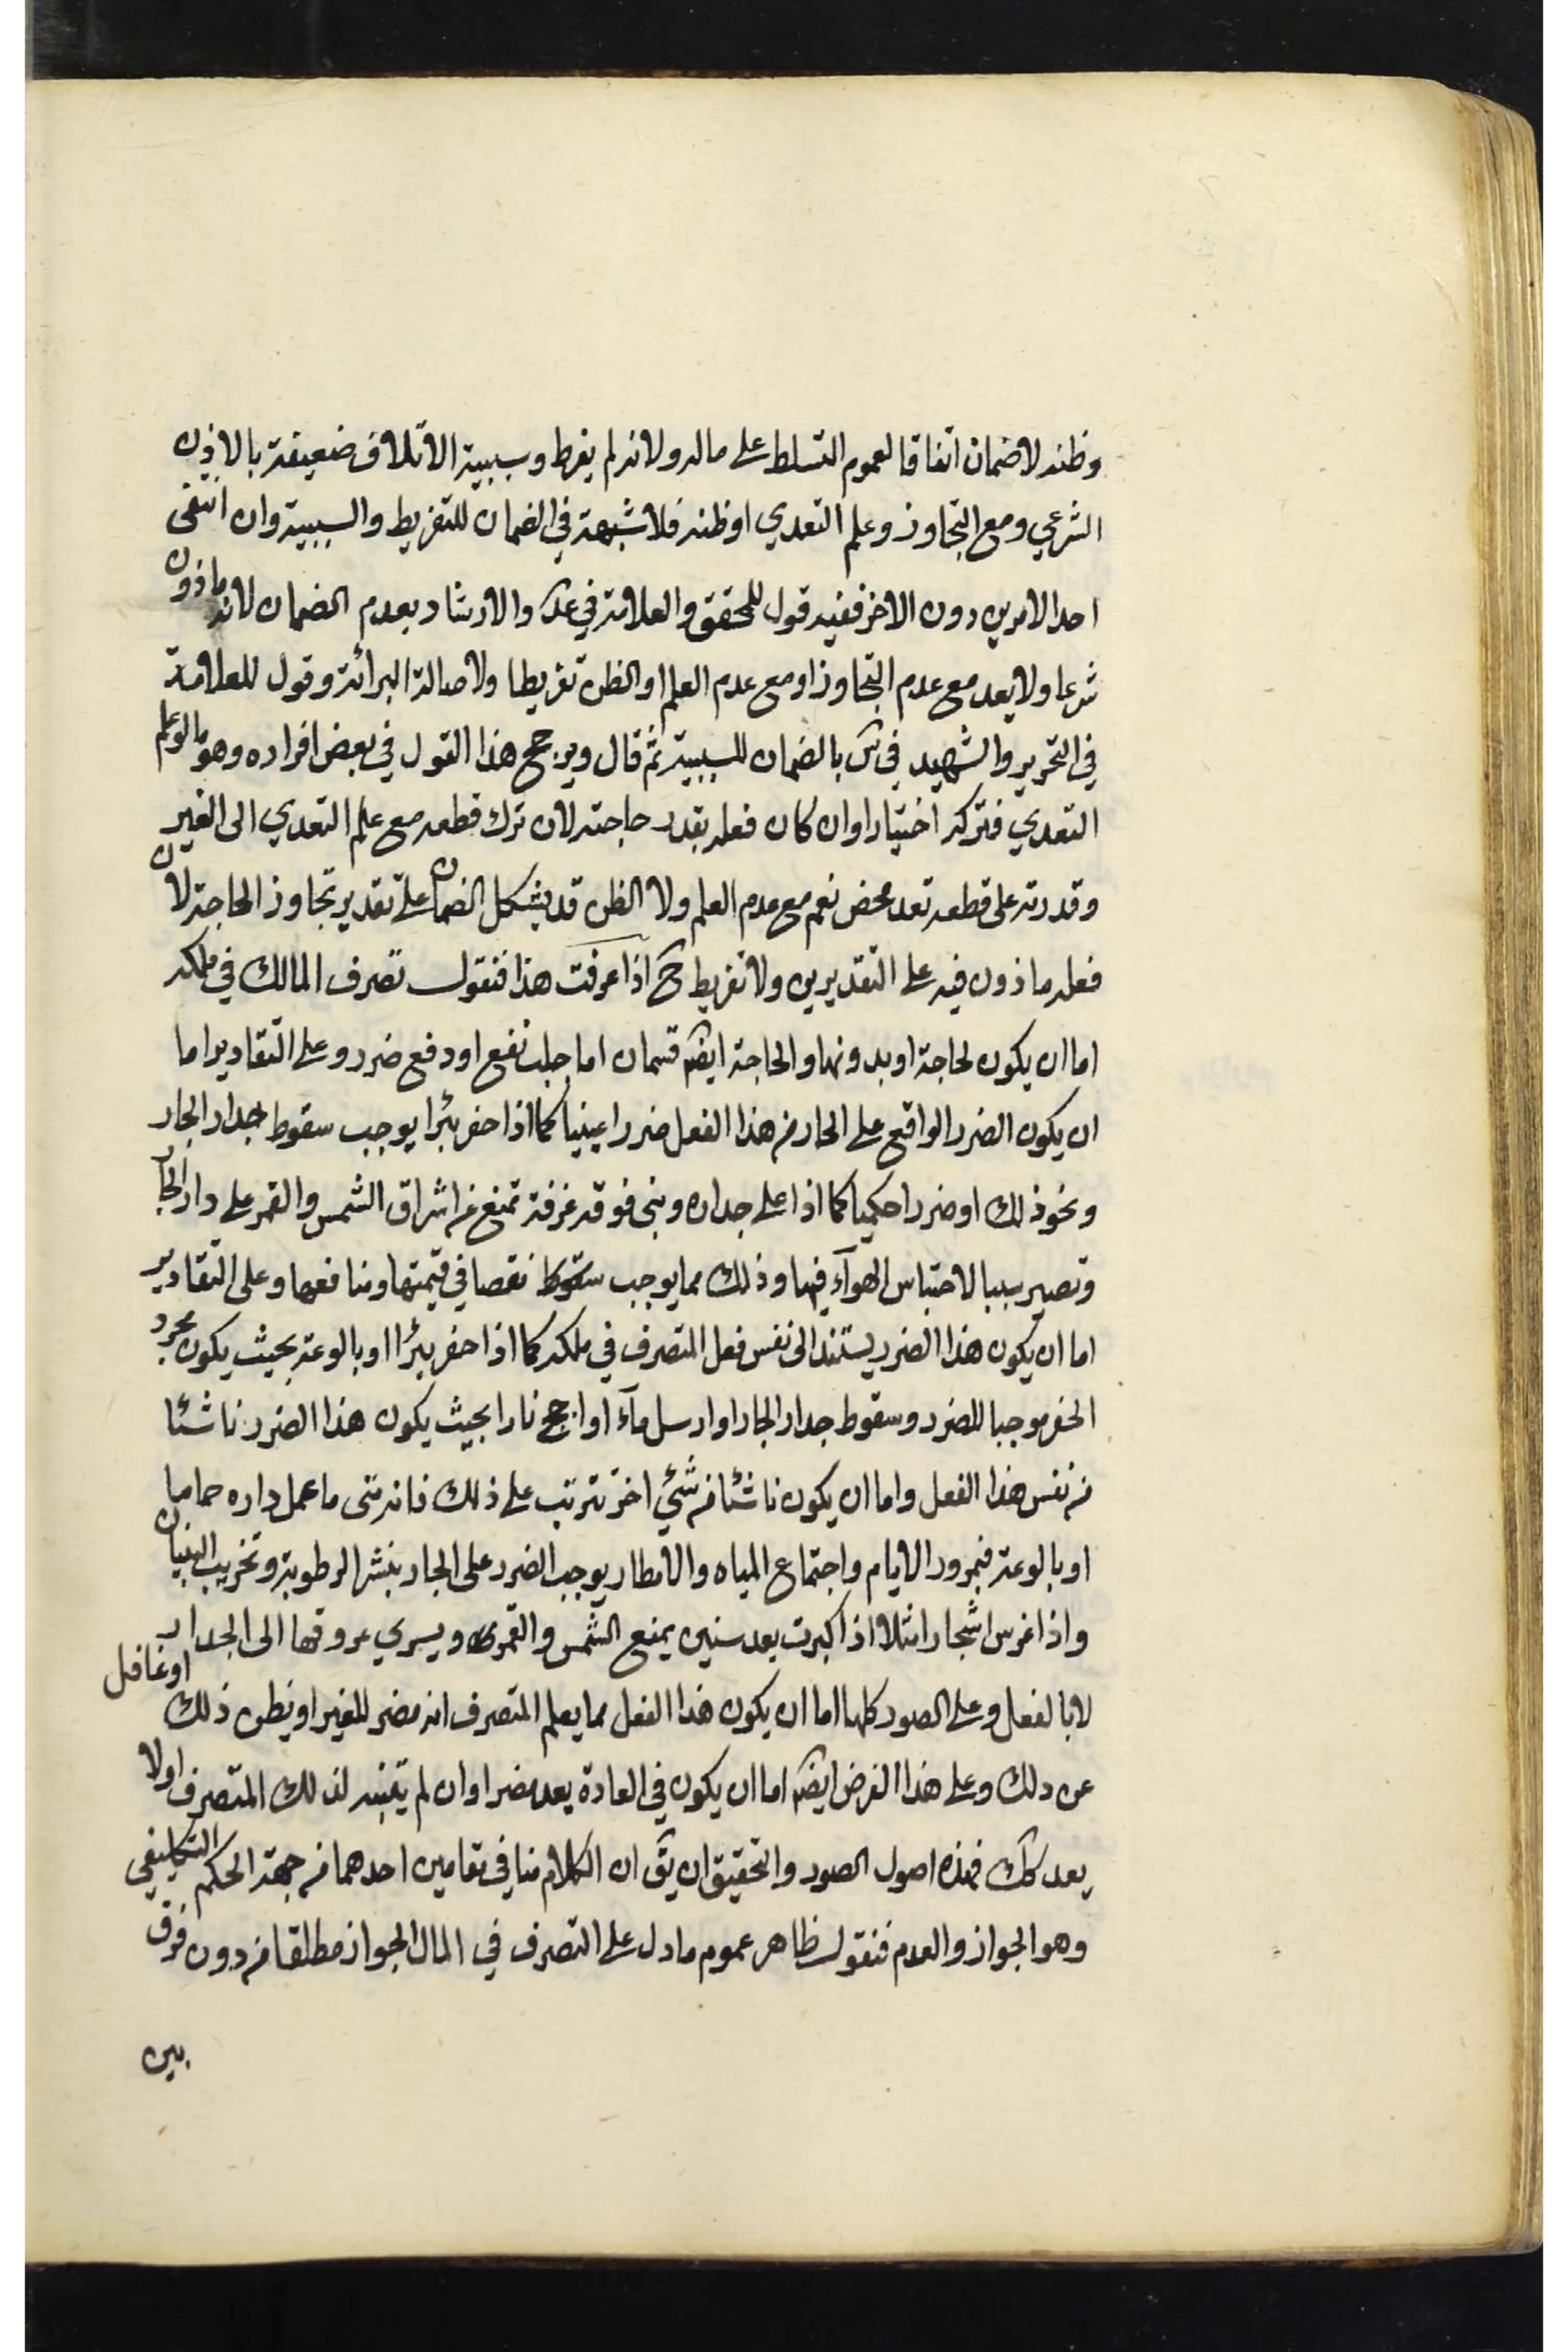 وظنه لا ضمان اتفاقا لعموم التسلط على ماله ولانه لم يفرط وسببية الاتلاف ضعيفة بالاذن
الشرعي ومع التجاوز وعلم التعدي او ظنه فلا شبهة في الضمان للتفريط والسببية وان انتفى
احد الامرين دون الاخر ففيه قول للمحقق والعلامة في عد والارشاد بعدم الضمان لانه ماذون
شرعا ولا يعد مع عدم التجاوز او مع عدم العلم او الظن تفريطا ولاصالة البرائة وقول للعلامة
في التحرير والشهيد في س بالضمان للسببية ثم قال ويرجح هذا القول في بعض افراده وهو ما لو علم
التعدي فتركه اختيارا وان كان فعله بقدر حاجته لان ترك قطعه مع علم التعدي الى الغير
وقدرته على قطعه تعد محض نعم مع عدم العلم ولا الظن قد يشكل الضمان على تقدير تجاوز الحاجة لان
فعله ماذون فيه على التقديرين ولا تفريط ح اذا عرفت هذا فنقول تصرف المالك في ملكه
اما ان يكون لحاجة او بدونها والحاجة ايضا قسمان اما جلب نفع او دفع ضرر وعلى التقادير اما
ان يكون الضرر الواقع على الجار من هذا الفعل ضررا عينيا كما اذا حفر بئرا يوجب سقوط جدار الجار
ونحو ذلك او ضررا حكميا كما اذا على جداره وبنى فوقه غرفة تمنع عن اشراق الشمس والقمر على دار الجار
وتصير سببا لاحتباس الهوآء فيها وذلك مما يوجب سقوط نقصا في قيمتها ومنافعها وعلى التقادير
اما ان يكون هذا الضرر يستند الى نفس فعل المتصرف في ملكه كما اذا حفر بئرا او بالوعة بحيث يكون مجرد
الحفر موجبا للضرر وسقوط جدار الجار او ارسل مآء او اجج نارا بحيث يكون هذا الضرر ناشئا
من نفس هذا الفعل واما ان يكون ناشئا من شيئ اخر تترتب على ذلك فانه متى ما عمل داره حماما
او بالوعة فبمرور الايام واجتماع المياه والامطار يوجب الضرر على الجار بنشر الرطوبة وتخريب البنيان
واذا غرس اشجارا مثلا اذا كبرت بعد سنين يمنع الشمس والقمر ويسري عروقها الى الجدار
لا بالفعل وعلى الصور كلها اما ان يكون هذا الفعل مما يعلم المتصرف انه مضر للغير او يظن ذلك او غافل
عن ذلك وعلى هذا الفرض ايضا اما ان يكون في العادة يعد مضرا وان لم يتنبه لذلك المتصرف او لا
يعد كك فهذه اصول الصور والتحقيق ان يق ان الكلام هنا في مقامين احدهما من جهة الحكم التكليفي
وهو الجواز والعدم فنقول ظاهر عموم ما دل على التصرف في المال الجواز مطلقا من دون فرق
بين